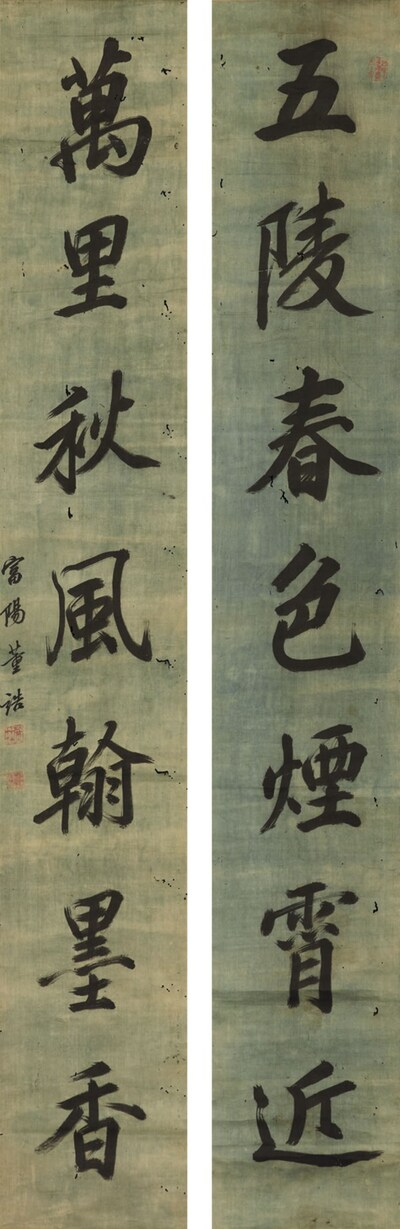 五陵春色煙霄近
萬里秋風翰墨香
富陽董誥